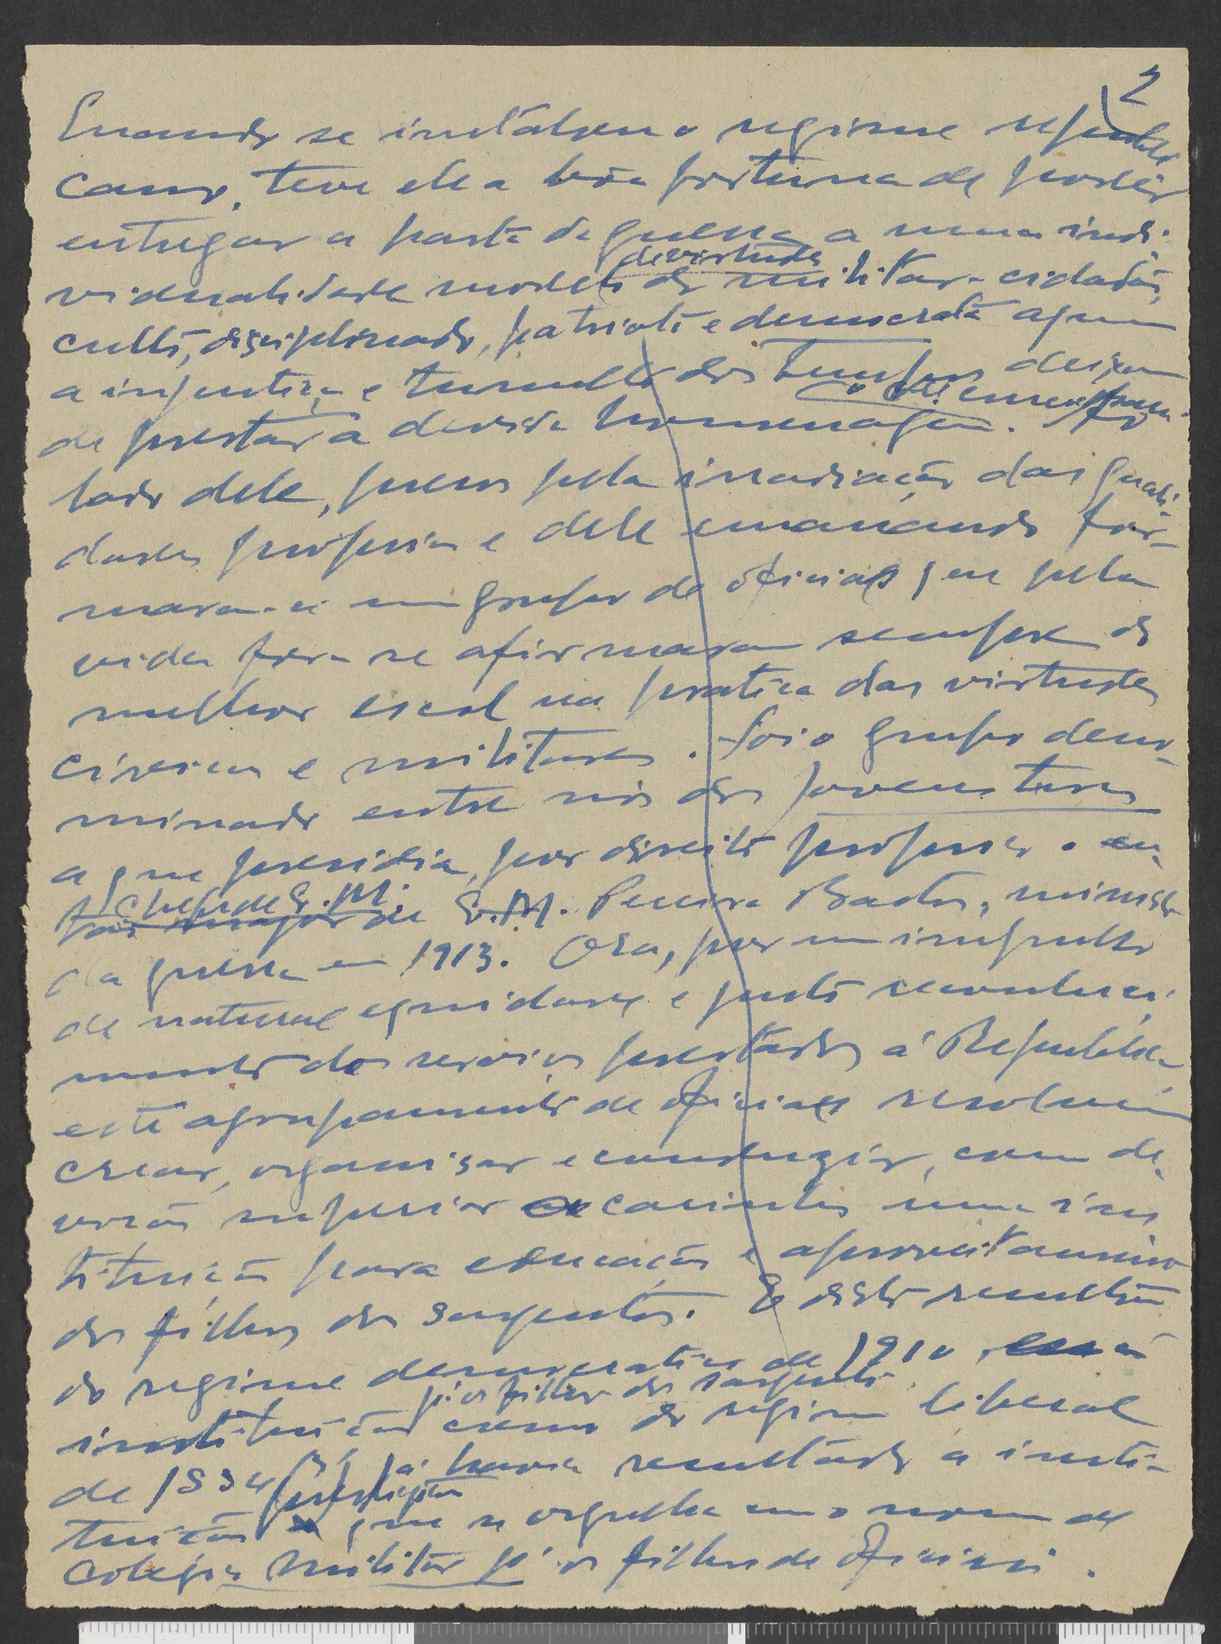 2
Quando se instalou o regime republi
cano, teve ele a bôa fortuna de poder
entregar a pasta da guerra a uma indi-
vidualidade modelo de virtudes de militar-cidadão,
culto, disciplinado, patriota e democrata a quem
a injustiça e tumulto dos tempos deixou
de prestar a devida homenagem. Ao
lado dele, presos pela irradiação das quali
dades proprias e dele emanando for-
maram-se um grupo de oficiais que pela
vida fora se afirmaram sempre do
melhor escol na pratica das virtudes
civicas e militares. Foi o grupo deno-
minado entre nós dos jovens turcos
a que presidia, por direito proprio o en
tão major de E.M. Pereira Bastos, ministro
chefe de E.M.
da guerra em 1913. Ora, por um impulso
de natural equidade e justo reconheci-
mento dos serviços prestados á Republica
este agrupamento de oficiais resolveu
crear, organisar e conduzir, com de-
voção superior e carinhos uma ins
tituição para educação e aproveitamento
dos filhos dos sargentos. E disto resultou
do regime democratico de 1910, a
instituição p.ª os filhos dos sargentos como do regime liberal
de 1834 já havia resultado a insti-
tuição que se orgulha em o nome de
Colegio Militar p.ª os filhos de oficiais.